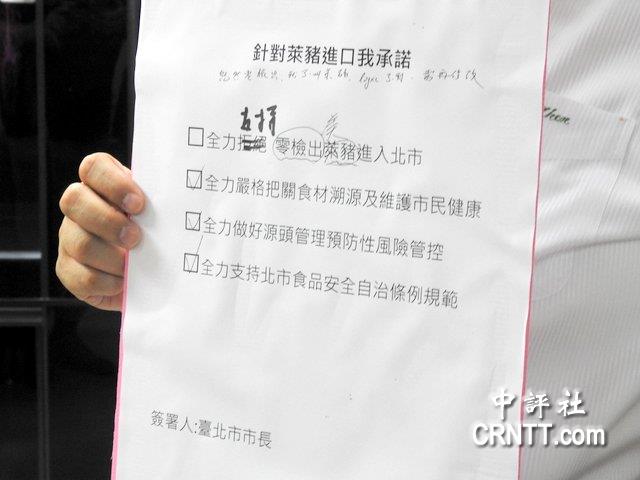 針對萊豬進口我承諾
支持
☐全力拒絕 零檢出萊豬進入北市
☑全力嚴格把關食材溯源及維護市民健康
☑全力做好源頭管理預防性風險管控
☑全力支持北市食品安全自治條例規範
簽署人:臺北市市長
中評社
CRNTT.com